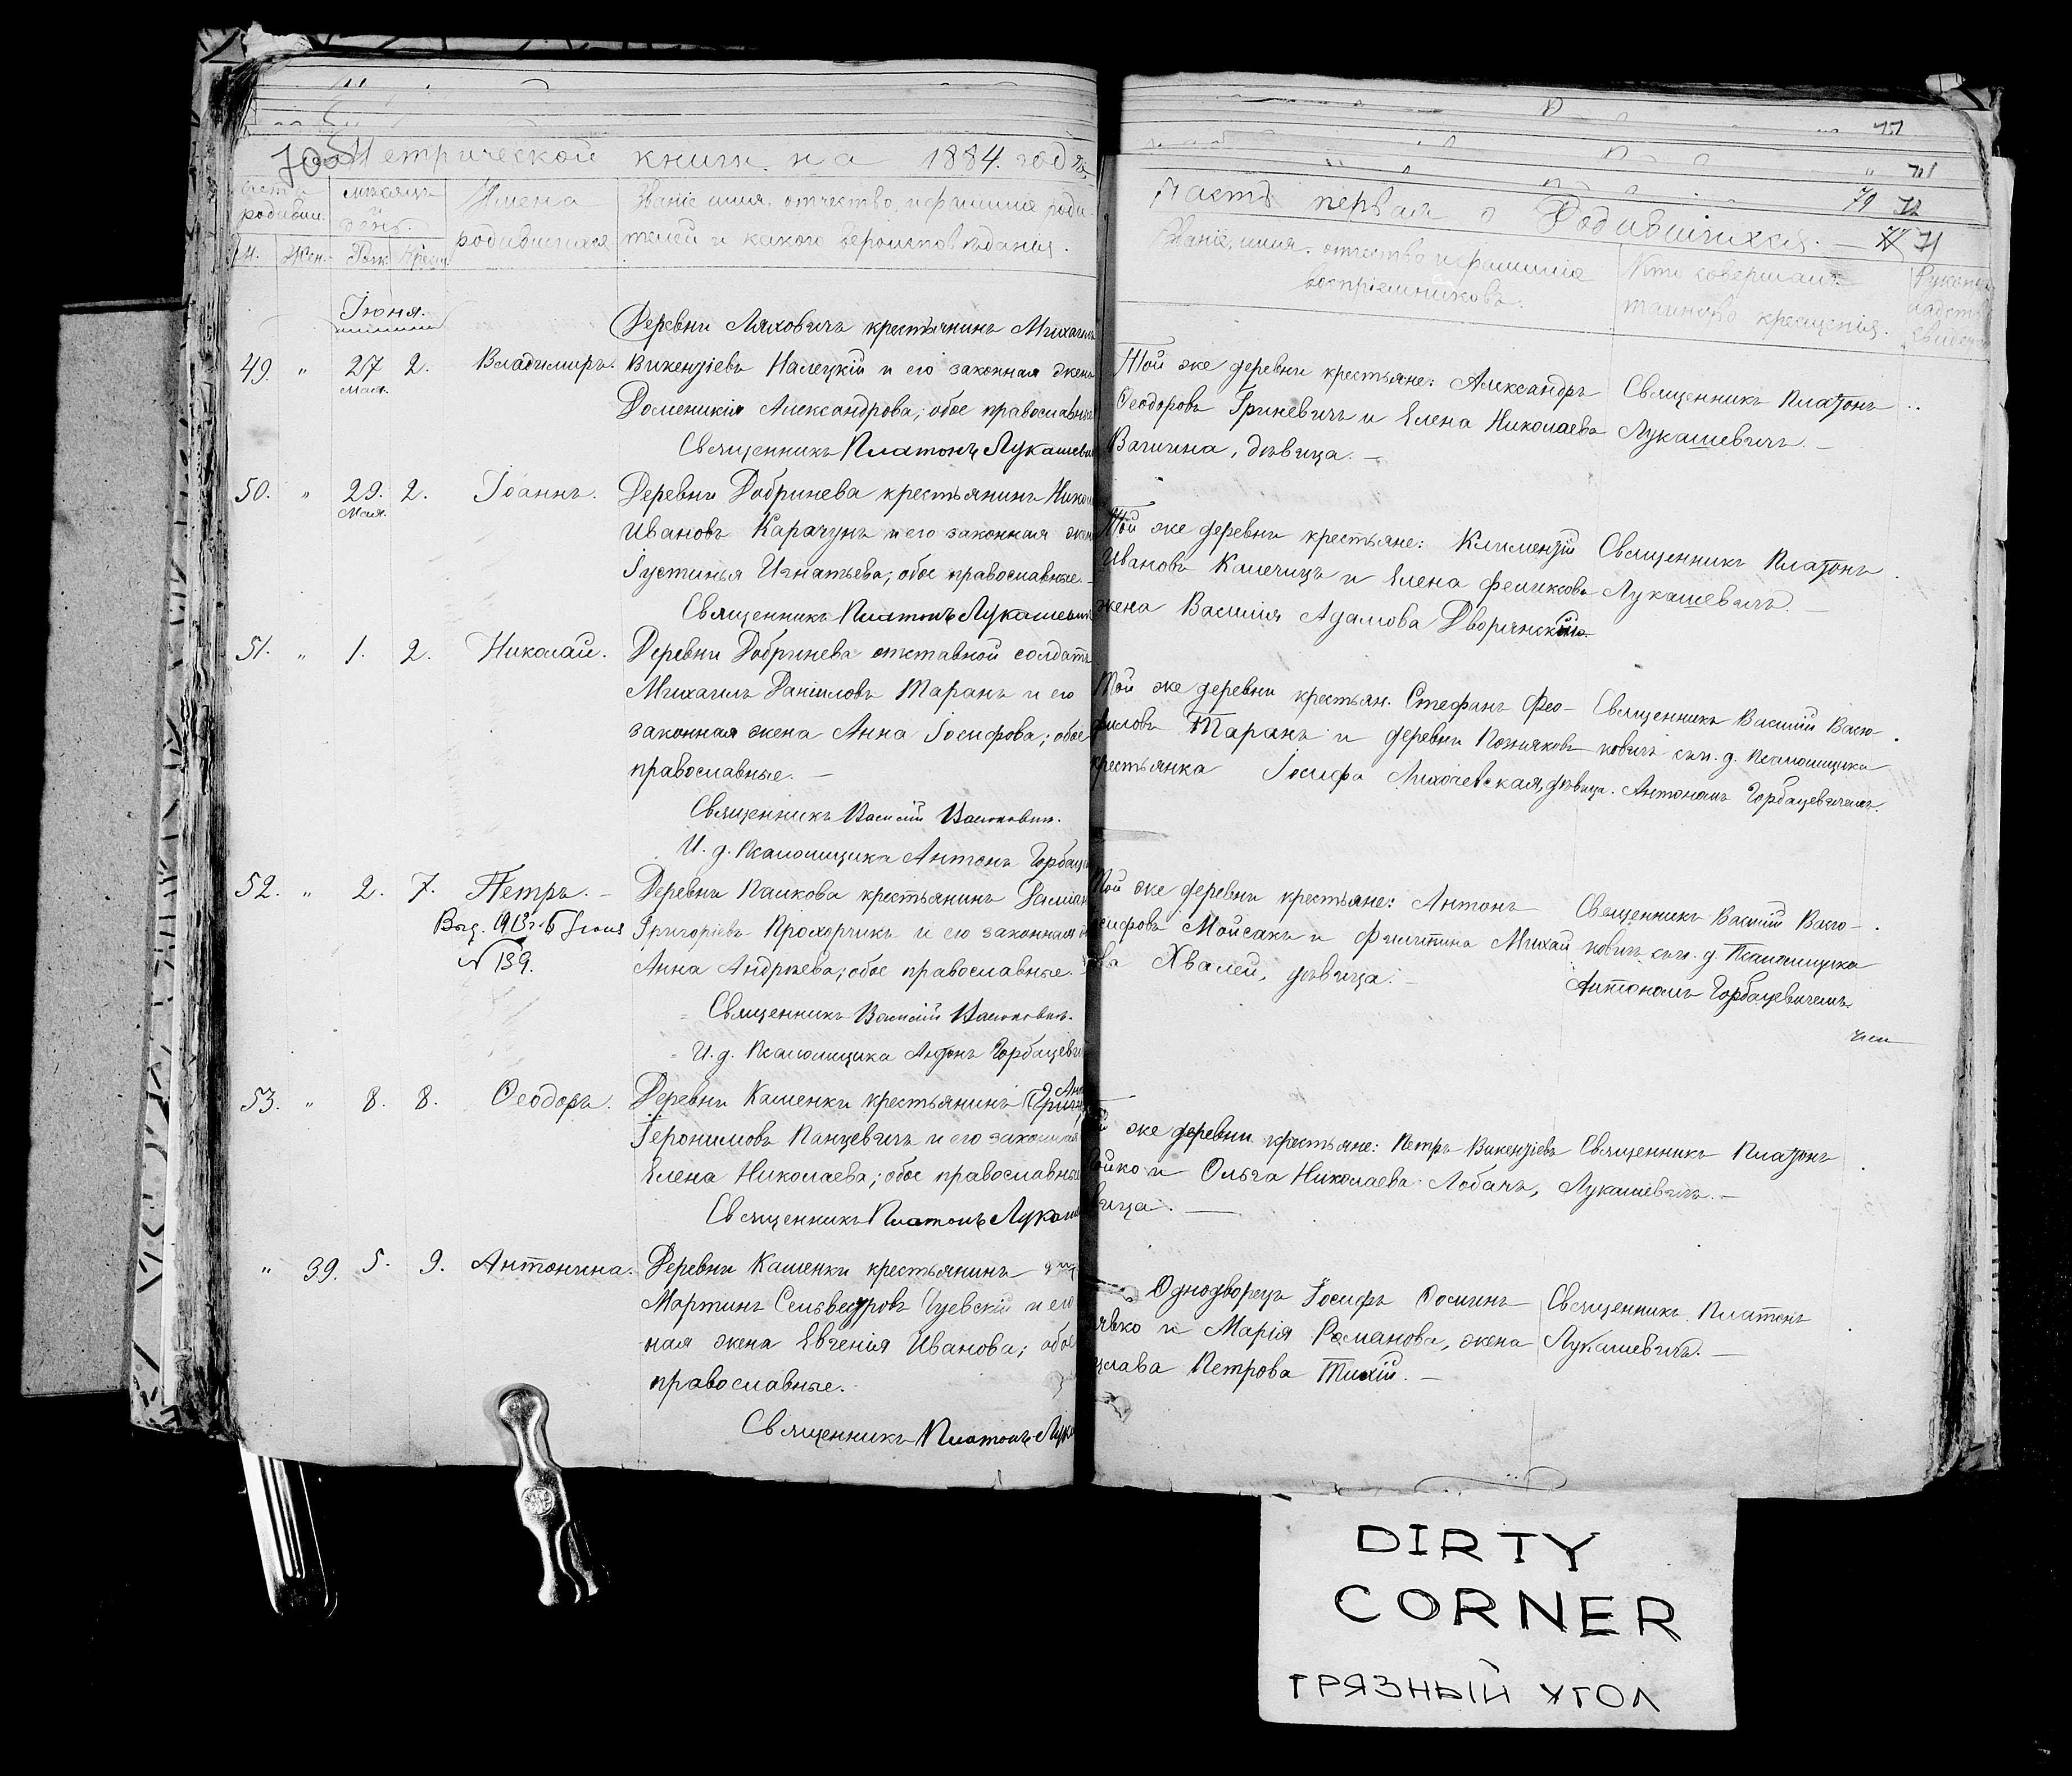 70об Метрической книги на 1884 годъ
Часть первая о Родившихся.
71
71
79 72
71
Счетъ родивш.
мѣсяцъ и день.
Имена родившихся.
Званіе имя, отчество, и фамилія роди-
телей и какого вѣроисповѣданія.
М. Жен. Рож. Крещ.
Званіе, имя, отчество и фамилія
воспріемниковъ.
Кто совершалъ
таинство крещенія.
Іюня.
Деревни Ляховичъ крестьянинъ Михаилъ
49. " 27 2. Владимиръ. Викентіевъ Налецкій и его законная жена
Мая.
Доменикія Александрова, обое православн
Священникъ Платонъ Лукашеви
Той же деревни крестьяне: Александръ
Ѳеодоровъ Гриневичъ и Елена Николаева
Вагина, дѣвица. —
Священникъ Платонъ
Лукашевичъ. —
50. " 29. 2. Іоаннъ. Деревни Добринева крестьянинъ Никол
Мая.
Ивановъ Карачунъ и его законная жен
Іустинья Игнатьева; обое православные. —
Священникъ Платонъ Лукашевич
Той же деревни крестьяне: Климентій
Ивановъ Клечицъ и Елена Феликсова
жена Василія Адамова Дворянск
Священникъ Платонъ
Лукашевичъ. —
51. " 1. 2. Николай. Деревни Добринева отставной солдатъ
Михаилъ Даніиловъ Таранъ и его
законная жена Анна Іосифова; обое
православные. —
Священникъ Василій Васюковичъ.
И. д. Псаломщика Антонъ Горбаце
Той же деревни крестьян. Стефанъ Фео-
филовъ Таранъ и деревни Позняковъ
крестьянка Іосифа Лихачевская, дѣвица.
Священникъ Василій Васю-
ковичъ съ и. д. Псаломщика
Антономъ Горбацевичемъ.
52. " 2. 7. Петръ. — Деревни Палкова крестьянинъ Даміан
Выд. 1913 г. 15 Іюня
№ 139.
Григоріевъ Прохорчикъ и его законная
Анна Андреева; обое православные. —
Священникъ Василій Васюковичъ.
И. д. Псаломщика Антонъ Горбацеви
Той же деревни крестьяне: Антонъ
сифовъ Мойсакъ и Филитина Михай
ва Хвалей, дѣвица. —
Священникъ Василій Васю-
ковичъ съ и. д. Псаломщика
Антономъ Горбацевичемъ
чем
53. " 8. 8. Ѳеодоръ. Деревни Каменки крестьянинъ
Іеронимовъ Панцевичъ и его законная
Елена Николаева; обое православные
Священникъ Платонъ Лукаш
й же деревни крестьяне: Петръ Викентіевъ
ойко и Ольга Николаева Лобачъ,
вица. —
Священникъ Платонъ
Лукашевичъ. —
" 39. 5. 9. Антонина. Деревни Каменки крестьянинъ
Мартинъ Сильвестровъ Гуевскій и его
ная жена Евгенія Иванова; обое
православные.
Священникъ Платонъ Лука
Однодворецъ Іосифъ Осипинъ
явко и Марія Романова, жена
цлава Петрова Тихій. —
Священникъ Платонъ
Лукашевичъ. —
DIRTY
CORNER
ГРЯЗНЫЙ УГОЛ